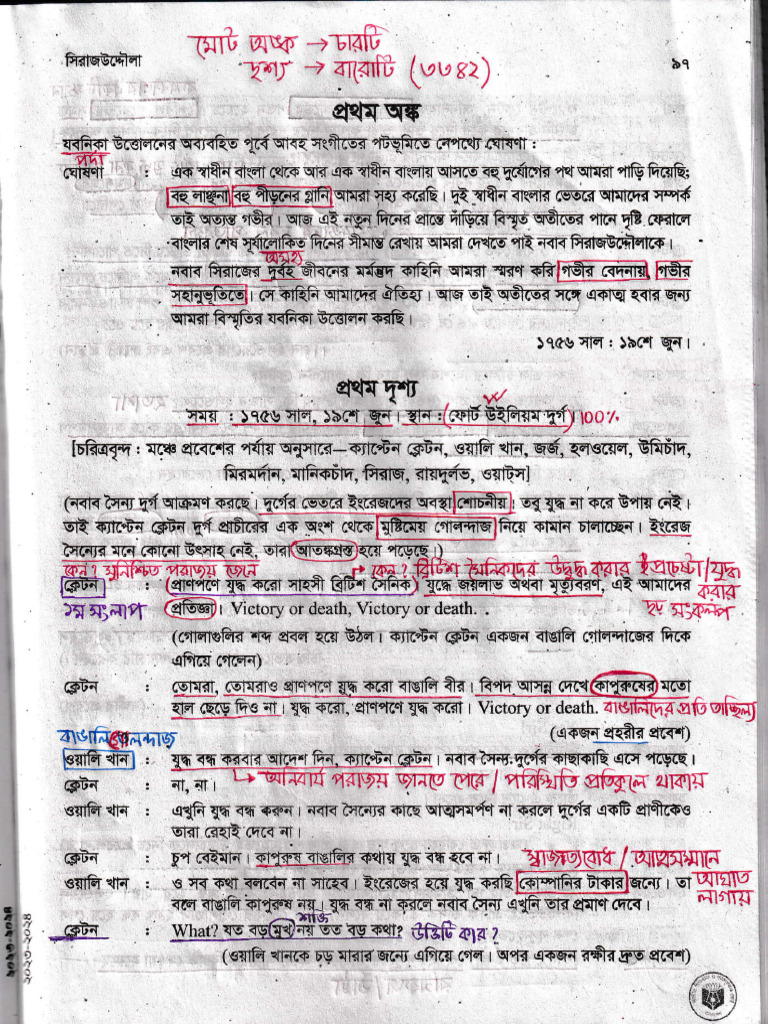 মোট অঙ্ক → চারটি
দৃশ্য → বারোটি (৩৩৪২)
সিরাজউদ্দৌলা ৯৭
প্রথম অঙ্ক
যবনিকা উত্তোলনের অব্যবহিত পূর্বে আবহ সংগীতের পটভূমিতে নেপথ্যে ঘোষণা :
পর্দা
ঘোষণা : এক স্বাধীন বাংলা থেকে আর এক স্বাধীন বাংলায় আসতে বহু দুর্যোগের পথ আমরা পাড়ি দিয়েছি;
বহু লাঞ্ছনা বহু পীড়নের গ্লানি আমরা সহ্য করেছি। দুই স্বাধীন বাংলার ভেতরে আমাদের সম্পর্ক
তাই অত্যন্ত গভীর। আজ এই নতুন দিনের প্রান্তে দাঁড়িয়ে বিস্মৃত অতীতের পানে দৃষ্টি ফেরালে
বাংলার শেষ সূর্যালোকিত দিনের সীমান্ত রেখায় আমরা দেখতে পাই নবাব সিরাজউদ্দৌলাকে।
অসহ্য
নবাব সিরাজের দুর্বহ জীবনের মর্মন্তুদ কাহিনি আমরা স্মরণ করি গভীর বেদনায়, গভীর
সহানুভূতিতে। সে কাহিনি আমাদের ঐতিহ্য। আজ তাই অতীতের সঙ্গে একাত্ম হবার জন্য
আমরা বিস্মৃতির যবনিকা উত্তোলন করছি।
১৭৫৬ সাল : ১৯শে জুন।
প্রথম দৃশ্য
সময় : ১৭৫৬ সাল, ১৯শে জুন। স্থান : (ফোর্ট উইলিয়াম দুর্গ) 100%
[চরিত্রবৃন্দ : মঞ্চে প্রবেশের পর্যায় অনুসারে—ক্যাপ্টেন ক্লেটন, ওয়ালি খান, জর্জ, হলওয়েল, উমিচাঁদ,
মিরমর্দান, মানিকচাঁদ, সিরাজ, রায়দুর্লভ, ওয়াটস]
(নবাব সৈন্য দুর্গ আক্রমণ করছে। দুর্গের ভেতরে ইংরেজদের অবস্থা শোচনীয়। তবু যুদ্ধ না করে উপায় নেই।
তাই ক্যাপ্টেন ক্লেটন দুর্গ প্রাচীরের এক অংশ থেকে মুষ্টিমেয় গোলন্দাজ নিয়ে কামান চালাচ্ছেন। ইংরেজ
সৈন্যের মনে কোনো উৎসাহ নেই, তারা আতঙ্কগ্রস্ত হয়ে পড়েছে।)
কেন? সুনিশ্চিত পরাজয় জেনে → কেন? ব্রিটিশ সৈনিকদের উদ্বুদ্ধ করার প্রচেষ্টা/যুদ্ধ
ক্লেটন : (প্রাণপণে যুদ্ধ করো সাহসী ব্রিটিশ সৈনিক) যুদ্ধে জয়লাভ অথবা মৃত্যুবরণ, এই আমাদের করার
১ম সংলাপ প্রতিজ্ঞা। Victory or death, Victory or death. দৃঢ় সংকল্প
(গোলাগুলির শব্দ প্রবল হয়ে উঠল। ক্যাপ্টেন ক্লেটন একজন বাঙালি গোলন্দাজের দিকে
এগিয়ে গেলেন)
ক্লেটন : তোমরা, তোমরাও প্রাণপণে যুদ্ধ করো বাঙালি বীর। বিপদ আসন্ন দেখে কাপুরুষের মতো
হাল ছেড়ে দিও না। যুদ্ধ করো, প্রাণপণে যুদ্ধ করো। Victory or death. বাঙালিদের প্রতি তাচ্ছিল্য
(একজন প্রহরীর প্রবেশ)
বাঙালি গোলন্দাজ
ওয়ালি খান : যুদ্ধ বন্ধ করবার আদেশ দিন, ক্যাপ্টেন ক্লেটন। নবাব সৈন্য দুর্গের কাছাকাছি এসে পড়েছে।
ক্লেটন : না, না। → অনিবার্য পরাজয় জানতে পেরে / পরিস্থিতি প্রতিকূলে থাকায়
ওয়ালি খান : এখুনি যুদ্ধ বন্ধ করুন। নবাব সৈন্যের কাছে আত্মসমর্পণ না করলে দুর্গের একটি প্রাণীকেও
তারা রেহাই দেবে না।
ক্লেটন : চুপ বেইমান। কাপুরুষ বাঙালির কথায় যুদ্ধ বন্ধ হবে না। স্বাজাত্যবোধ / আত্মসম্মানে
ওয়ালি খান : ও সব কথা বলবেন না সাহেব। ইংরেজের হয়ে যুদ্ধ করছি কোম্পানির টাকার জন্যে। তা আঘাত
বলে বাঙালি কাপুরুষ নয়। যুদ্ধ বন্ধ না করলে নবাব সৈন্য এখুনি তার প্রমাণ দেবে। লাগায়
ক্লেটন : What? যত বড় মুখ নয় তত বড় কথা? উক্তিটি কার?
(ওয়ালি খানকে চড় মারার জন্যে এগিয়ে গেল। অপর একজন রক্ষীর দ্রুত প্রবেশ)
২০২৩-২০২৪